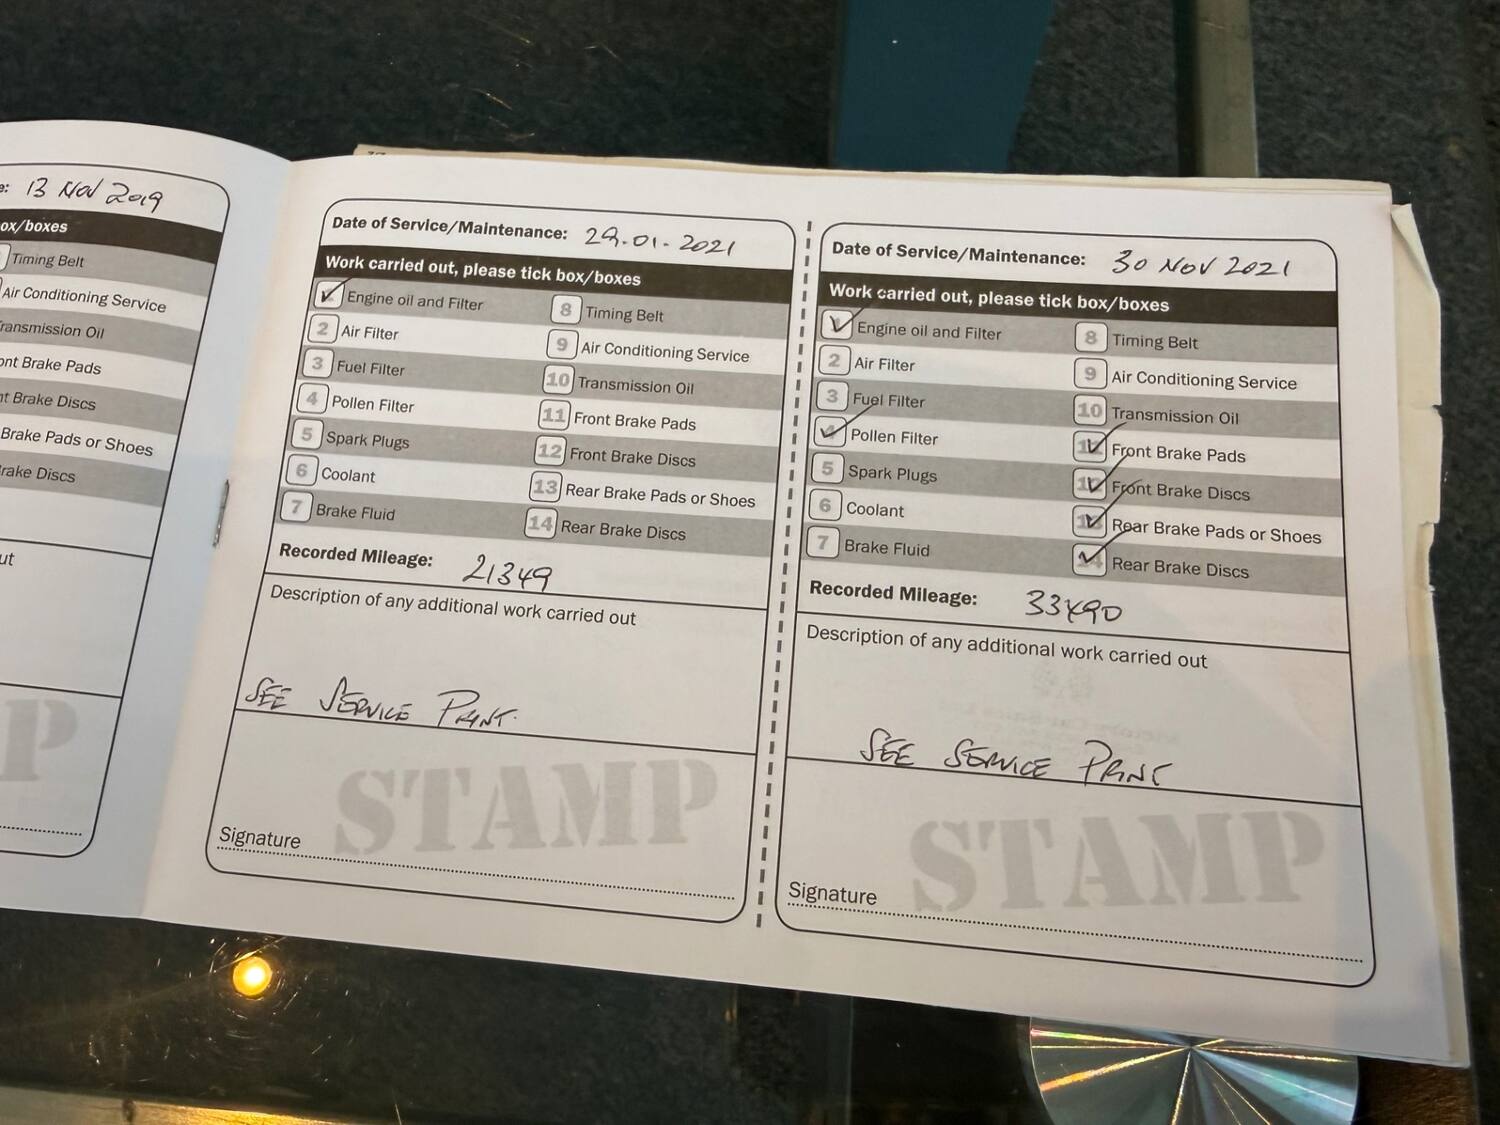 e: 13 NOV 2019
ox/boxes
Timing Belt
Air Conditioning Service
ransmission Oil
nt Brake Pads
nt Brake Discs
Brake Pads or Shoes
rake Discs
ut
P
Date of Service/Maintenance: 29.01.2021
Work carried out, please tick box/boxes
Engine oil and Filter 8 Timing Belt
2 Air Filter 9 Air Conditioning Service
3 Fuel Filter 10 Transmission Oil
4 Pollen Filter 11 Front Brake Pads
5 Spark Plugs 12 Front Brake Discs
6 Coolant 13 Rear Brake Pads or Shoes
7 Brake Fluid 14 Rear Brake Discs
Recorded Mileage: 21349
Description of any additional work carried out
SEE SERVICE PRINT.
STAMP
Signature
Date of Service/Maintenance: 30 NOV 2021
Work carried out, please tick box/boxes
1 Engine oil and Filter 8 Timing Belt
2 Air Filter 9 Air Conditioning Service
3 Fuel Filter 10 Transmission Oil
4 Pollen Filter 11 Front Brake Pads
5 Spark Plugs 12 Front Brake Discs
6 Coolant 13 Rear Brake Pads or Shoes
7 Brake Fluid 14 Rear Brake Discs
Recorded Mileage: 33490
Description of any additional work carried out
SEE SERVICE PRINT
STAMP
Signature